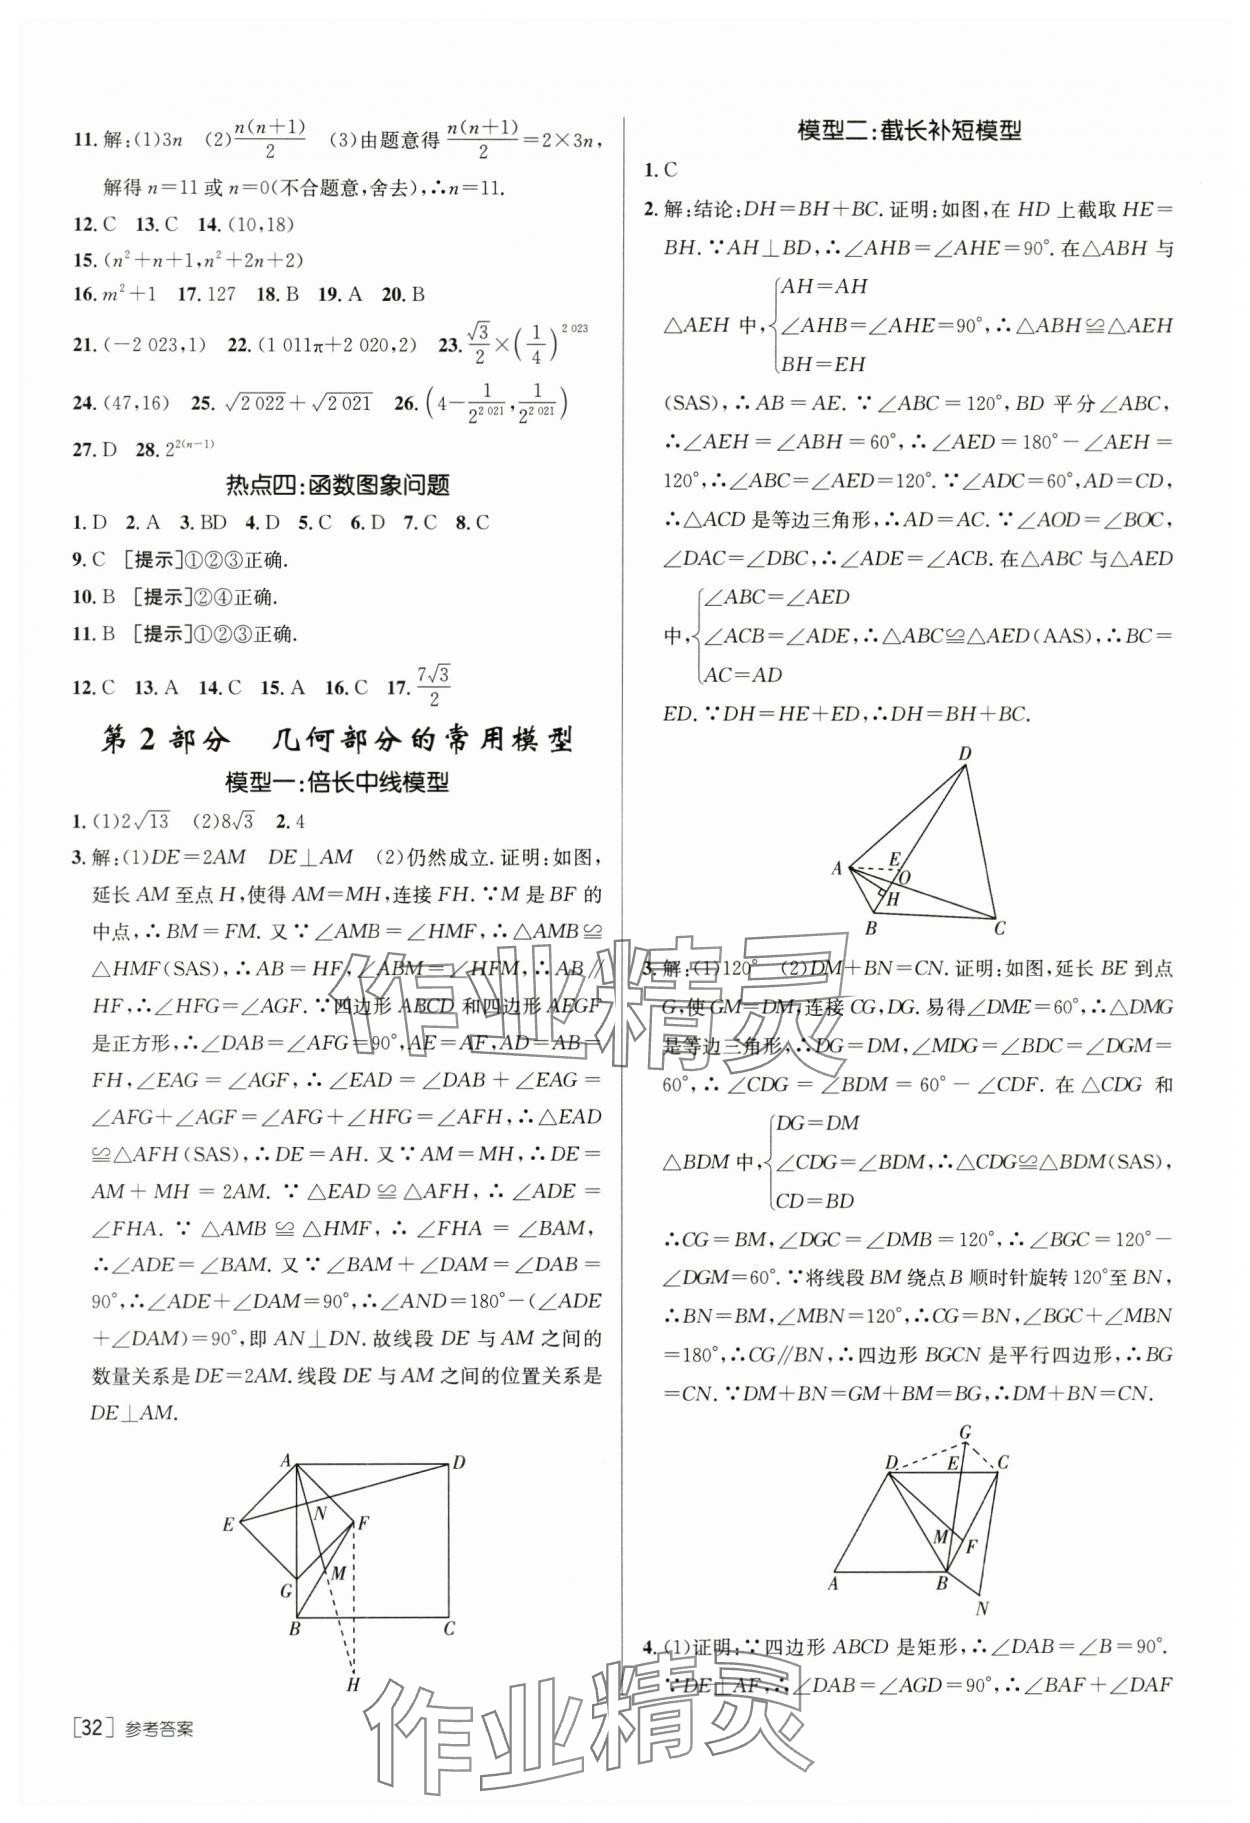 11. 解:(1)3n (2)n(n+1)/2 (3)由题意得n(n+1)/2=2×3n,
解得n=11或n=0(不合题意,舍去),∴n=11.
12. C 13. C 14. (10,18)
15. (n²+n+1,n²+2n+2)
16. m²+1 17. 127 18. B 19. A 20. B
21. (-2 023,1) 22. (1 011π+2 020,2) 23. √3/2×(1/4)^2 023
24. (47,16) 25. √2 022+√2 021 26. (4-1/2^2 021,1/2^2 021)
27. D 28. 2^2(n-1)
热点四:函数图象问题
1. D 2. A 3. BD 4. D 5. C 6. D 7. C 8. C
9. C [提示]①②③正确.
10. B [提示]②④正确.
11. B [提示]①②③正确.
12. C 13. A 14. C 15. A 16. C 17. 7√3/2
第2部分 几何部分的常用模型
模型一:倍长中线模型
1. (1)2√13 (2)8√3 2. 4
3. 解:(1)DE=2AM DE⊥AM (2)仍然成立.证明:如图,
延长AM至点H,使得AM=MH,连接FH.∵M是BF的
中点,∴BM=FM.又∵∠AMB=∠HMF,∴△AMB≌
△HMF(SAS),∴AB=HF,∠ABM=∠HFM,∴AB∥
HF,∴∠HFG=∠AGF.∵四边形ABCD和四边形AEGF
是正方形,∴∠DAB=∠AFG=90°,AE=AF,AD=AB=
FH,∠EAG=∠AGF,∴∠EAD=∠DAB+∠EAG=
∠AFG+∠AGF=∠AFG+∠HFG=∠AFH,∴△EAD
≌△AFH(SAS),∴DE=AH.又∵AM=MH,∴DE=
AM+MH=2AM.∵△EAD≌△AFH,∴∠ADE=
∠FHA.∵△AMB≌△HMF,∴∠FHA=∠BAM,
∴∠ADE=∠BAM.又∵∠BAM+∠DAM=∠DAB=
90°,∴∠ADE+∠DAM=90°,∴∠AND=180°-(∠ADE
+∠DAM)=90°,即AN⊥DN.故线段DE与AM之间的
数量关系是DE=2AM.线段DE与AM之间的位置关系是
DE⊥AM.
A
D
E
N
F
M
G
B
C
H
[32] 参考答案
模型二:截长补短模型
1. C
2. 解:结论:DH=BH+BC.证明:如图,在HD上截取HE=
BH.∵AH⊥BD,∴∠AHB=∠AHE=90°.在△ABH与
AH=AH
△AEH中,{∠AHB=∠AHE=90°,∴△ABH≌△AEH
BH=EH
(SAS),∴AB=AE.∵∠ABC=120°,BD平分∠ABC,
∴∠AEH=∠ABH=60°,∴∠AED=180°-∠AEH=
120°,∴∠ABC=∠AED=120°.∵∠ADC=60°,AD=CD,
∴△ACD是等边三角形,∴AD=AC.∵∠AOD=∠BOC,
∠DAC=∠DBC,∴∠ADE=∠ACB.在△ABC与△AED
∠ABC=∠AED
中,{∠ACB=∠ADE,∴△ABC≌△AED(AAS),∴BC=
AC=AD
ED.∵DH=HE+ED,∴DH=BH+BC.
D
A
E
O
H
B
C
3. 解:(1)120° (2)DM+BN=CN.证明:如图,延长BE到点
G,使GM=DM,连接CG,DG.易得∠DME=60°,∴△DMG
是等边三角形,∴DG=DM,∠MDG=∠BDC=∠DGM=
60°,∴∠CDG=∠BDM=60°-∠CDF.在△CDG和
DG=DM
△BDM中,{∠CDG=∠BDM,∴△CDG≌△BDM(SAS),
CD=BD
∴CG=BM,∠DGC=∠DMB=120°,∴∠BGC=120°-
∠DGM=60°.∵将线段BM绕点B顺时针旋转120°至BN,
∴BN=BM,∠MBN=120°,∴CG=BN,∠BGC+∠MBN
=180°,∴CG∥BN,∴四边形BGCN是平行四边形,∴BG
=CN.∵DM+BN=GM+BM=BG,∴DM+BN=CN.
G
D
E
C
M
F
A
B
N
4. (1)证明:∵四边形ABCD是矩形,∴∠DAB=∠B=90°.
∵DE⊥AF,∴∠DAB=∠AGD=90°,∴∠BAF+∠DAF
作业精灵
作业精灵